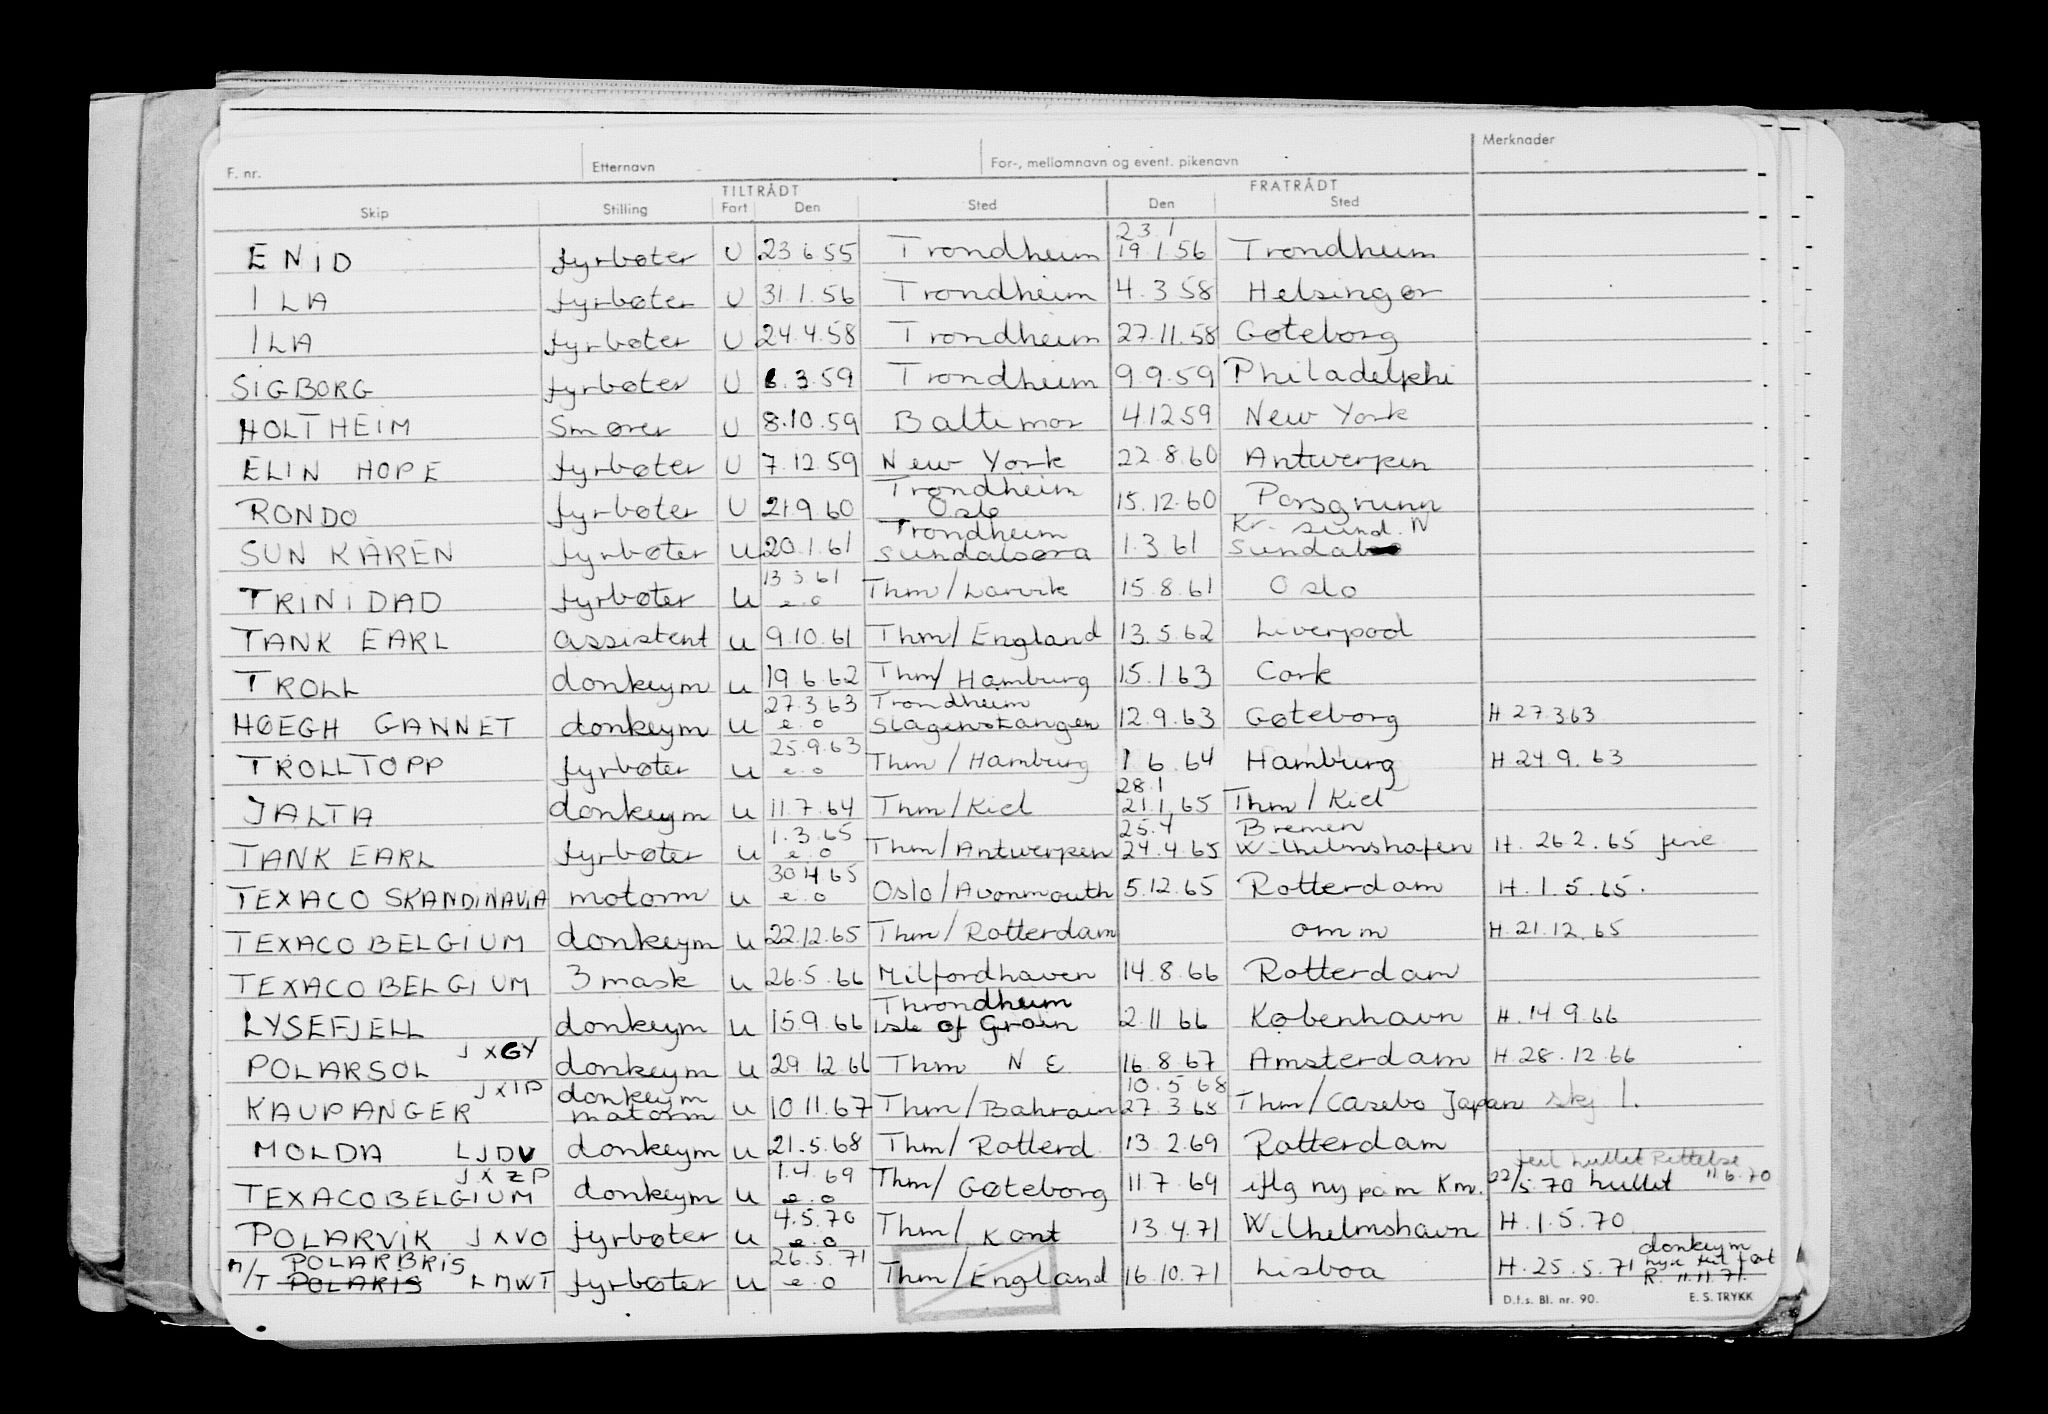 F. nr. Etternavn For-, mellomnavn og event. pikenavn Merknader
TILTRÅDT FRATRÅDT
Skip Stilling Fort Den Sted Den Sted
23 1
ENID fyrbøter U 23 6 55 Trondheim 19.1.56 Trondheim
ILA fyrbøter U 31.1.56 Trondheim 4.3 58 Helsingør
ILA fyrbøter U 24.4.58 Trondheim 27.11.58 Gøteborg
SIGBORG fyrbøter U 6.3.59 Trondheim 9.9.59 Philadelphi
HOLTHEIM Smører U 8.10.59 Baltimor 4.12 59 New York
ELIN HOPE fyrbøter U 7.12.59 New York 22.8.60 Antwerpen
Trondheim
RONDO fyrbøter U 21.9 60 Oslo 15.12.60 Porsgrunn
Trondheim Kr. sund. N
SUN KÅREN fyrbøter U 20.1.61 Sundalsøra 1.3 61
13 3 61
TRINIDAD fyrbøter U e.o Thm/Larvik 15.8.61 Oslo
TANK EARL assistent U 9.10.61 Thm/England 13.5.62 Liverpool
TROLL donkeym U 19 6 62 Thm/Hamburg 15.1.63 Cork
27.3 63 Trondheim
HØEGH GANNET donkeym U e.o Slagenstangen 12.9.63 Gøteborg H 27.3 63
25.9.63
TROLLTOPP fyrbøter U e.o Thm/Hamburg 1 6.64 Hamburg H 24.9.63
28.1
JALTA donkeym U 11.7.64 Thm/Kiel 21.1.65 Thm/Kiel
1.3.65 25.4 Bremen
TANK EARL fyrbøter U e.o Thm/Antwerpen 24.4.65 Wilhelmshafen H. 26 2.65 ferie
30 4 65
TEXACO SKANDINAVIA motorm U e.o Oslo/Avonmouth 5.12.65 Rotterdam H.1.5.65.
TEXACO BELGIUM donkeym U 22.12.65 Thm/Rotterdam omm H.21.12.65
TEXACO BELGIUM 3 mask U 26.5.66 Milfordhaven 14.8.66 Rotterdam
Throndheim
LYSEFJELL donkeym U 15.9.66 Isle of Grain 2.11 66 København H.14 9.66
JXGY
POLARSOL donkeym U 29.12.66 Thm N E 16.8.67 Amsterdam H.28.12.66
JXIP donkeym 10.5 68
KAUPANGER motorm U 10 11.67 Thm/Bahrain 27.3 68 Thm/Casebo Japan skj 1.
MOLDA LJDV donkeym U 21.5.68 Thm/Rotterd. 13 2.69 Rotterdam
JXZP 1.4.69 feil hullet Rettelse
TEXACO BELGIUM donkeym U e.o Thm/Gøteborg 11 7.69 iflg ny påm Km. 22/5.70 hullet 11 6.70
4.5.70
POLARVIK JXVO fyrbøter U e.o Thm/Kent 13.4.71 Wilhelmshavn H.1.5.70
POLARBRIS 26.5.71 donkeym
M/T POLARIS LMWT fyrbøter U e.o Thm/England 16.10.71 Lisboa H.25.5.71
R. 11.11.71.
D.f.s. Bl. nr. 90. E. S. TRYKK